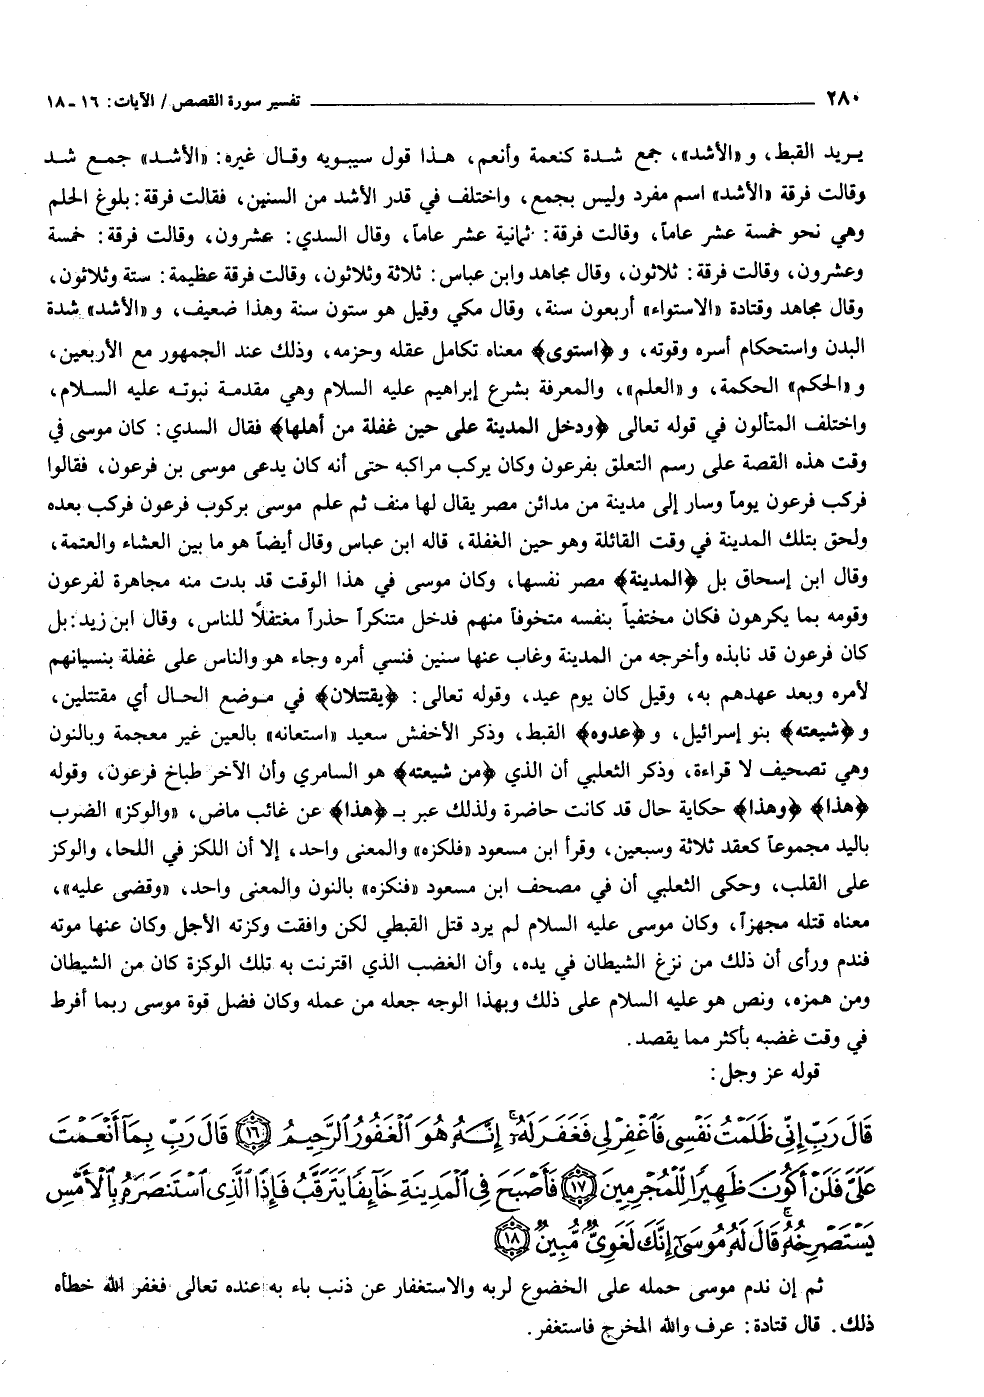 ٢٨٠ ــــــــــ تفسير سورة القصص / الآيات: ١٦ - ١٨
يريد القبط، و «الأشد»، جمع شدة كنعمة وأنعم، هذا قول سيبويه وقال غيره: «الأشد» جمع شد
وقالت فرقة «الأشد» اسم مفرد وليس بجمع، واختلف في قدر الأشد من السنين، فقالت فرقة: بلوغ الحلم
وهي نحو خمسة عشر عاماً، وقالت فرقة: ثمانية عشر عاماً، وقال السدي: عشرون، وقالت فرقة: خمسة
وعشرون، وقالت فرقة: ثلاثون، وقال مجاهد وابن عباس: ثلاثة وثلاثون، وقالت فرقة عظيمة: ستة وثلاثون،
وقال مجاهد وقتادة «الاستواء» أربعون سنة، وقال مكي وقيل هو ستون سنة وهذا ضعيف، و «الأشد» شدة
البدن واستحكام أسره وقوته، و ﴿استوى﴾ معناه تكامل عقله وحزمه، وذلك عند الجمهور مع الأربعين،
و «الحكم» الحكمة، و «العلم»، والمعرفة بشرع إبراهيم عليه السلام وهي مقدمة نبوته عليه السلام،
واختلف المتألون في قوله تعالى ﴿ودخل المدينة على حين غفلة من أهلها﴾ فقال السدي: كان موسى في
وقت هذه القصة على رسم التعلق بفرعون وكان يركب مراكبه حتى أنه كان يدعى موسى بن فرعون، فقالوا
فركب فرعون يوماً وسار إلى مدينة من مدائن مصر يقال لها منف ثم علم موسى بركوب فرعون فركب بعده
ولحق بتلك المدينة في وقت القائلة وهو حين الغفلة، قاله ابن عباس وقال أيضاً هو ما بين العشاء والعتمة،
وقال ابن إسحاق بل ﴿المدينة﴾ مصر نفسها، وكان موسى في هذا الوقت قد بدت منه مجاهرة لفرعون
وقومه بما يكرهون فكان مختفياً بنفسه متخوفاً منهم فدخل متنكراً حذراً مغتفلًا للناس، وقال ابن زيد: بل
كان فرعون قد نابذه وأخرجه من المدينة وغاب عنها سنين فنسي أمره وجاء هو والناس على غفلة بنسيانهم
لأمره وبعد عهدهم به، وقيل كان يوم عيد، وقوله تعالى: ﴿يقتتلان﴾ في موضع الحال أي مقتتلين،
و ﴿شيعته﴾ بنو إسرائيل، و ﴿عدوه﴾ القبط، وذكر الأخفش سعيد «استعانه» بالعين غير معجمة وبالنون
وهي تصحيف لا قراءة، وذكر الثعلبي أن الذي ﴿من شيعته﴾ هو السامري وأن الآخر طباخ فرعون، وقوله
﴿هذا﴾ ﴿وهذا﴾ حكاية حال قد كانت حاضرة ولذلك عبر بـ ﴿هذا﴾ عن غائب ماض، «والوكز» الضرب
باليد مجموعاً كعقد ثلاثة وسبعين، وقرأ ابن مسعود «فلكزه» والمعنى واحد، إلا أن اللكز في اللحا، والوكز
على القلب، وحكى الثعلبي أن في مصحف ابن مسعود «فنكزه» بالنون والمعنى واحد، «وقضى عليه»،
معناه قتله مجهزاً، وكان موسى عليه السلام لم يرد قتل القبطي لكن وافقت وكزته الأجل وكان عنها موته
فندم ورأى أن ذلك من نزغ الشيطان في يده، وأن الغضب الذي اقترنت به تلك الوكزة كان من الشيطان
ومن همزه، ونص هو عليه السلام على ذلك وبهذا الوجه جعله من عمله وكان فضل قوة موسى ربما أفرط
في وقت غضبه بأكثر مما يقصد.
قوله عز وجل:
قَالَ رَبِّ إِنِّي ظَلَمْتُ نَفْسِي فَاغْفِرْ لِي فَغَفَرَ لَهُ إِنَّهُ هُوَ الْغَفُورُ الرَّحِيمُ ﴿١٦﴾ قَالَ رَبِّ بِمَا أَنْعَمْتَ
عَلَيَّ فَلَنْ أَكُونَ ظَهِيرًا لِلْمُجْرِمِينَ ﴿١٧﴾ فَأَصْبَحَ فِي الْمَدِينَةِ خَائِفًا يَتَرَقَّبُ فَإِذَا الَّذِي اسْتَنْصَرَهُ بِالْأَمْسِ
يَسْتَصْرِخُهُ قَالَ لَهُ مُوسَى إِنَّكَ لَغَوِيٌّ مُبِينٌ ﴿١٨﴾
ثم إن ندم موسى حمله على الخضوع لربه والاستغفار عن ذنب باء به عنده تعالى فغفر الله خطأه
ذلك. قال قتادة: عرف والله المخرج فاستغفر.